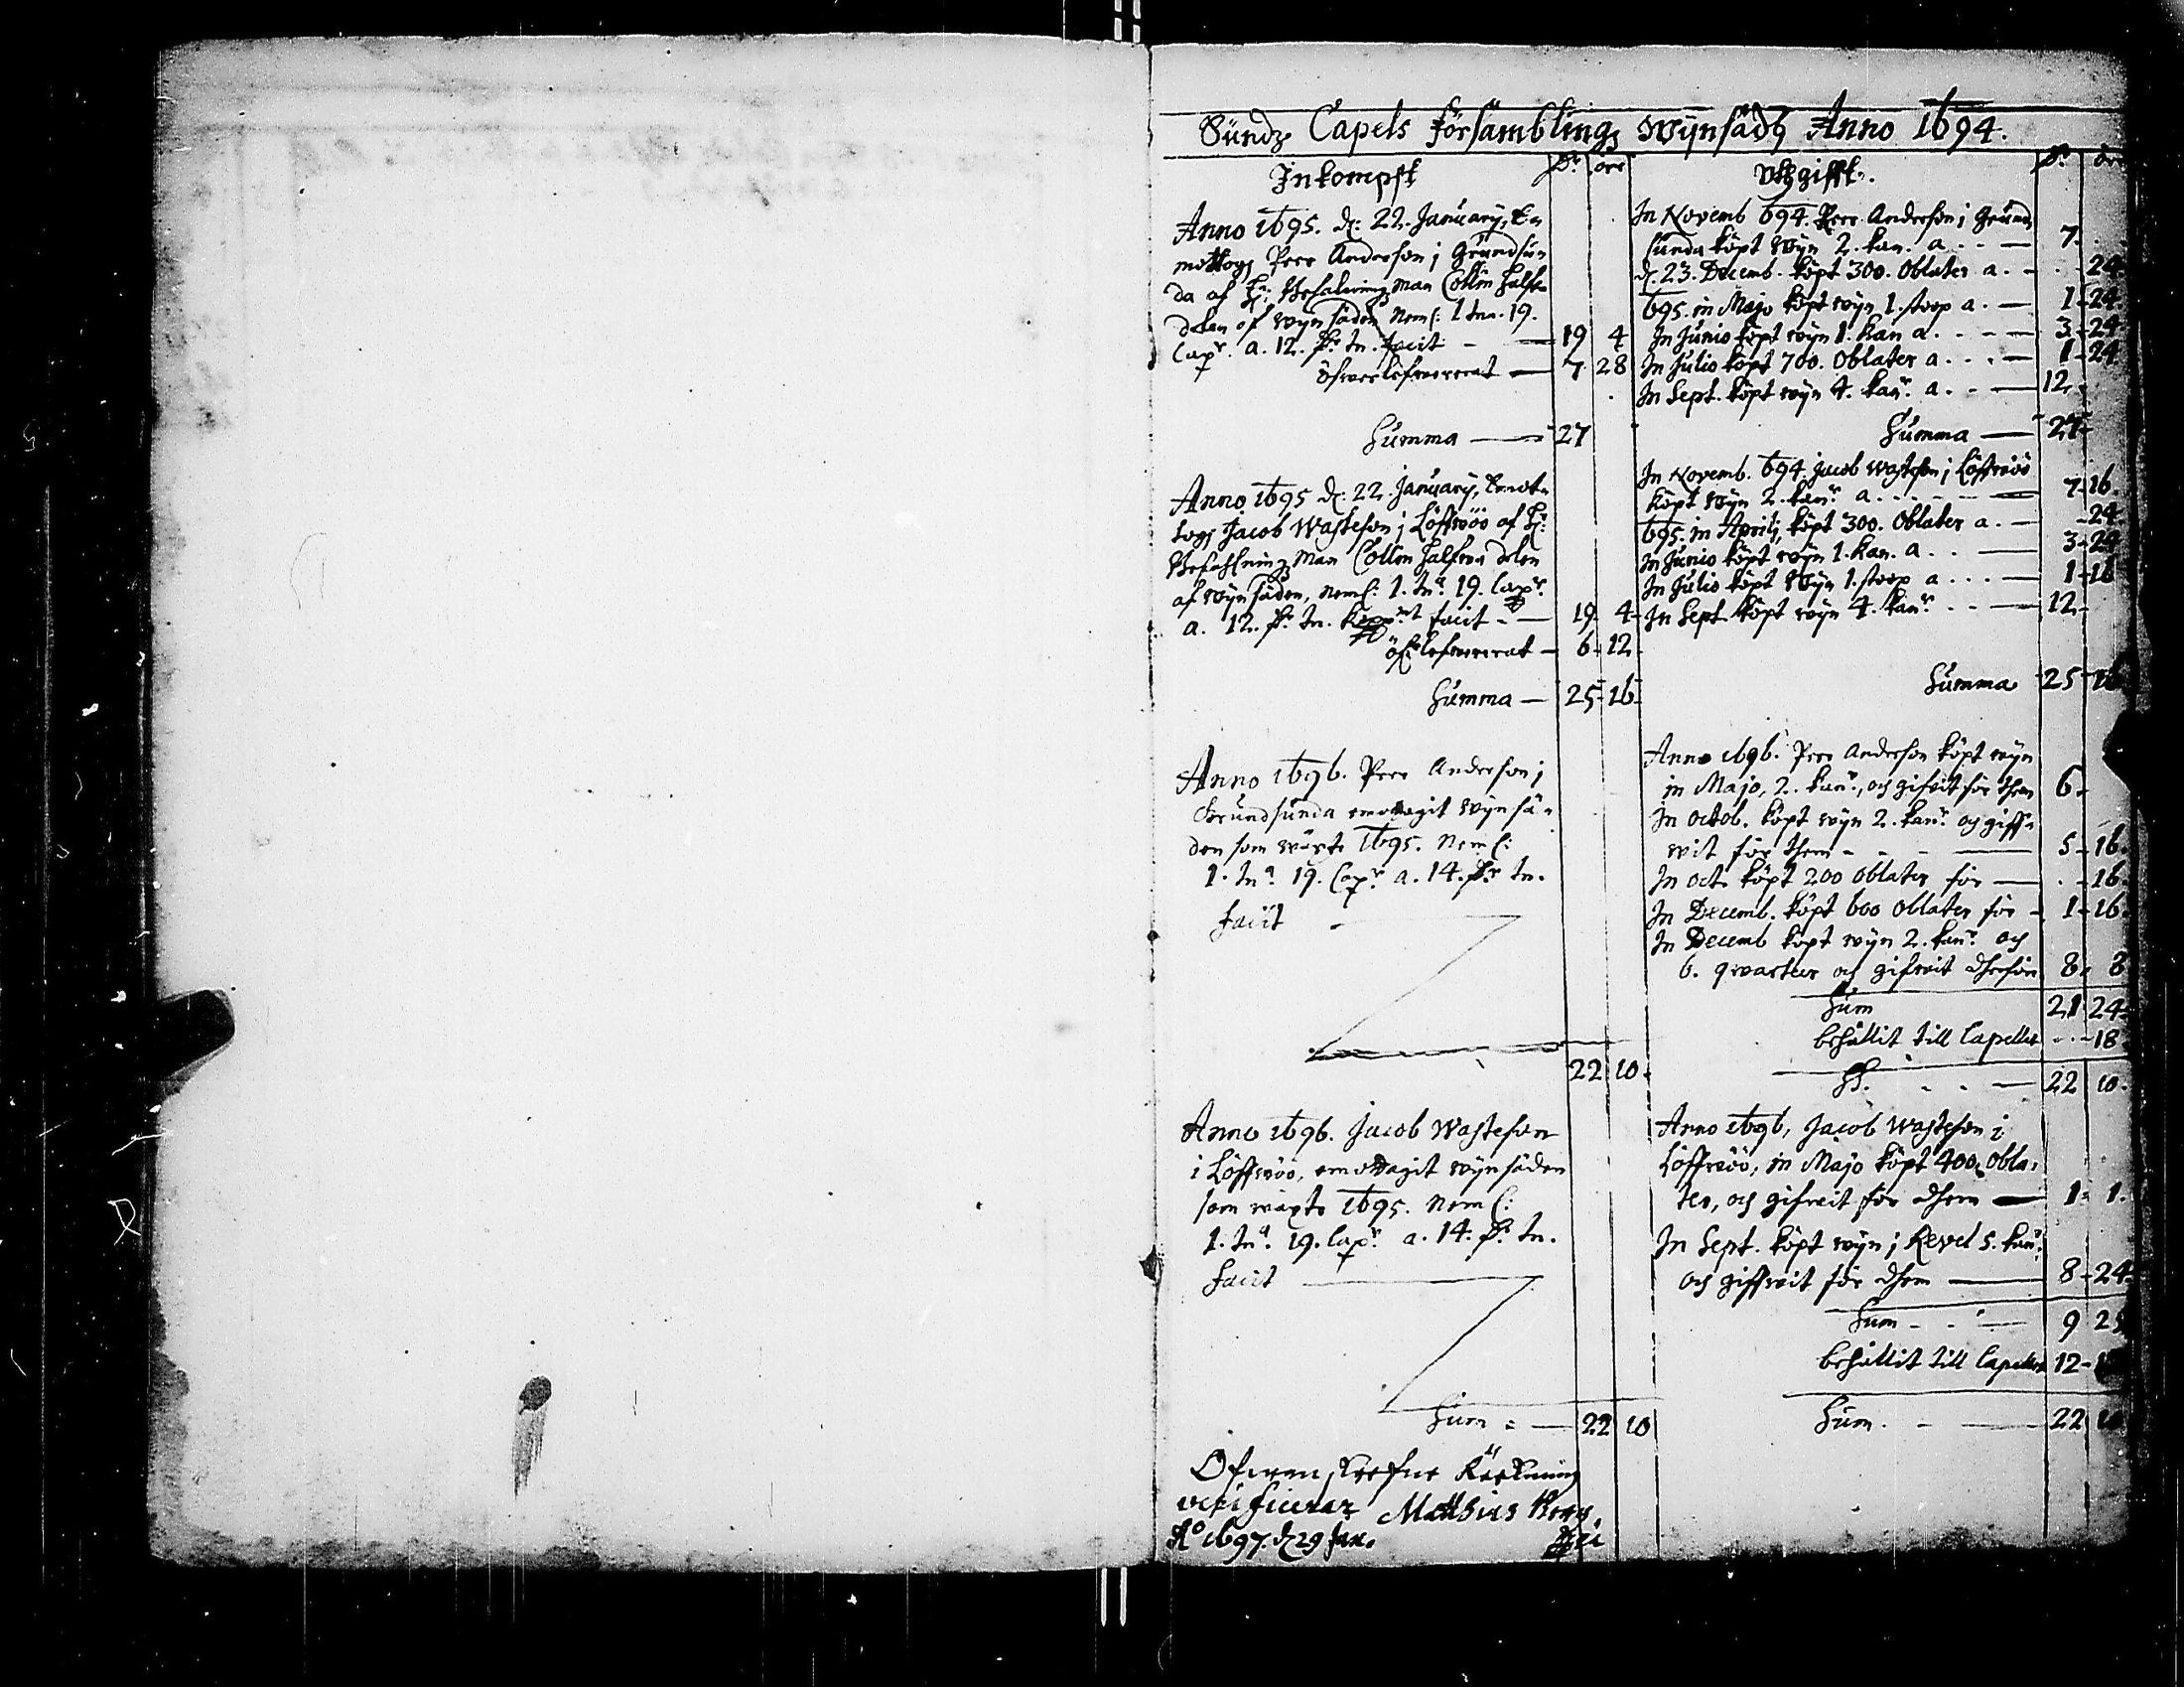 Sundz Capels församblings wijnsädh Anno 1694.
Inkompst Dr. öre
Anno 1695. d: 22. January, Em
mottogs Peer Anderson j Grundsun
da af H: Befalnings Man Collin halfve
delen af wijnsäden Neml: 1 tna. 19.
Capr. a. 12. dr tn. facit - 19 4
öfwerlefwererat - 7 28
Summa - 27
Anno 1695 d: 22. January, Emot
togs Jacob Wasteson j Löffwöö af Hr:
Befahlnings Man Collin halfwa delen
af wijnsäden, neml: 1. tna. 19. Capr.
a. 12. dr. tn. facit - 19 4
öfr lefwererat - 6 12
Summa - 25 16
Anno 1696. Peer Anderson j
Grundsunda emottagit wijnsä-
den som wäxte 1695. Neml:
1. tna. 19. Capr. a. 14. dr tn.
facit -
22 10.
Anno 1696. Jacob Wasteson
i Löffwöö, emottagit wijnsäden
som wäxte 1695. Neml:
1. tna. 19. Capr. a. 14. dr. tn.
facit
Sum - 22 10
Ofwanskrefne Räkning
verificerar Mathias
Ao 1697. d 29 Jan.
Uthgifft. Dr. öre
In Novemb 694. Peer Anderson j Grund
sunda köpt wijn 2. kan. a - 7.
d: 23. Decemb. köpt 300. Oblater a. - 24
695. in Majo köpt wijn 1. stoop a. - 1 - 24
In Junio köpt wijn 1. kan a - 3 - 24
In Julio köpt 700. Oblater a - 1 - 24
In Sept. köpt wijn 4. kanr. a. - 12.
Summa - 27
In Novemb. 694. Jacob Wasteson j Löffwöö
köpt wijn 2. kanr. a - 7 - 16.
695. in Aprilj köpt 300. Oblater a. - 24
In Junio köpt wijn 1. kan. a - 3 - 24
In Julio köpt wijn 1. stoop a - 1 - 16
In Sept. köpt wijn 4. kanr. - 12.
Summa 25 16
Anno 1696. Peer Anderson köpt wijn
in Majo, 2. kanr., och gifvit för them 6.
In octob. köpt wijn 2. kanr. och giff-
wit för them - 5 - 16.
In oct. köpt 200 oblater för - 16.
In Decemb. köpt 600 oblater för - 1 - 16.
In Decemb köpt wijn 2. kanr. och
6. qwarter och gifwit dherföre 8 - 8
Sum 21 24
behållit till Capellet - 18
22 10.
Anno 1696, Jacob Wasteson i
Löffwöö, in Majo köpt 400 obla-
ter, och gifwit för dhem - 1 - 1.
In Sept. köpt wijn j Revel 5. kanr.
och giffwit för dhem - 8 - 24
Sum - 9 25
behållit till Capellet 12 -
Sum. - 22 10